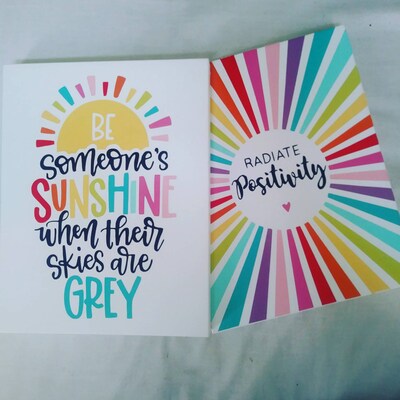 BE
someone's
SUNSHINE
when their
skies are
GREY
RADIATE
Positivity